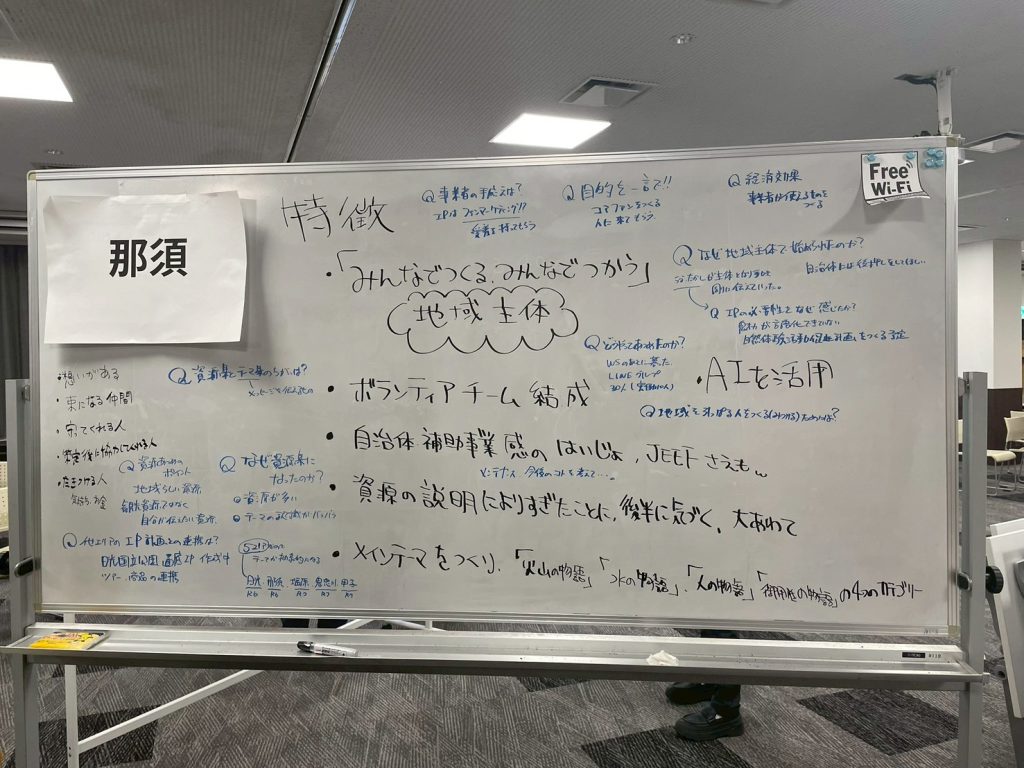 那須
Free
Wi-Fi
特徴
Q 事業者の手応えは?
IPはファンマーケティング!!
愛着を持ってもらう
Q 目的を一言で!!
コアファンをつくる
人に来てもらう
Q 経済効果
事業者が使えるものを
つくる
・「みんなでつくる、みんなでつかう」
地域主体
Q なぜ地域主体で始められたのか?
自治体には後押しをしてほしい
国に伝えていった。
Q IPの必要性をなぜ感じたか?
魅力が言語化できていない
自然体験活動促進計画をつくる予定
Q どうやってあつめたのか?
WSのあとに募った
LINEグループ
30人
・AIを活用
Q 地域をひっぱる人をつくる(みつける)ためには?
・ボランティアチーム結成
・自治体補助事業感のはいじょ、JEEFさえも
今後のコトを考えて…。
・資源の説明によりすぎたことに、後半に気づく。大あわて
・メインテーマをつくり、「火山の物語」「水の物語」、「人の物語」「御用地の物語」の4つのカテゴリー
・想いがある
・束になる仲間
・守ってくれる人
・策定後に協力してくれる人
・たきつける人
気持ち・お金
Q 資源集とテーマ集のちがいは?
メッセージを伝えるもの
Q 資源あつめの
ポイント
地域らしい資源
自分が伝えたい資源
Q なぜ資源集に
なったのか?
・資源が多い
・テーマの認識がバラバラ
Q 他エリアのIP計画との連携は?
日光国立公園 全体IP 作成中
ツアー、商品の連携
5エリア
日光 那須 塩原 鬼怒川 甲子
R6 R6 R7 R7 R7